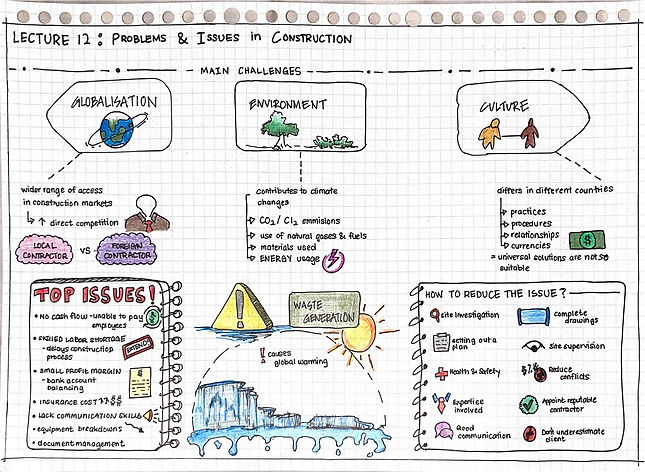 LECTURE 12: PROBLEMS & ISSUES in CONSTRUCTION
MAIN CHALLENGES
GLOBALISATION
wider range of access
in construction markets
↳ ↑ direct competition
LOCAL
CONTRACTOR
VS
FOREIGN
CONTRACTOR
ENVIRONMENT
contributes to climate
changes
CO2/ Cl2 emmisions
use of natural gases & fuels
materials used
ENERGY usage
CULTURE
differs in different countries
practices
procedures
relationships
currencies
$
= universal solutions are not so
suitable
TOP ISSUES!
• No cash flow - unable to pay
employees
$
• SKILLED LABOR SHORTAGE
- delays construction
process
EXTEND
• SMALL PROFIT MARGIN
- bank account
balancing
$
• INSURANCE COST
• LACK COMMUNICATION SKILLS
• equipment breakdowns
• document management
!
WASTE
GENERATION
! causes
global warming
HOW TO REDUCE THE ISSUE?
Site Investigation
setting out a
plan
Health & Safety
Expertise
involved
Good
communication
complete
drawings
Site supervision
Reduce
conflicts
Appoint reputable
contractor
Don't underestimate
client